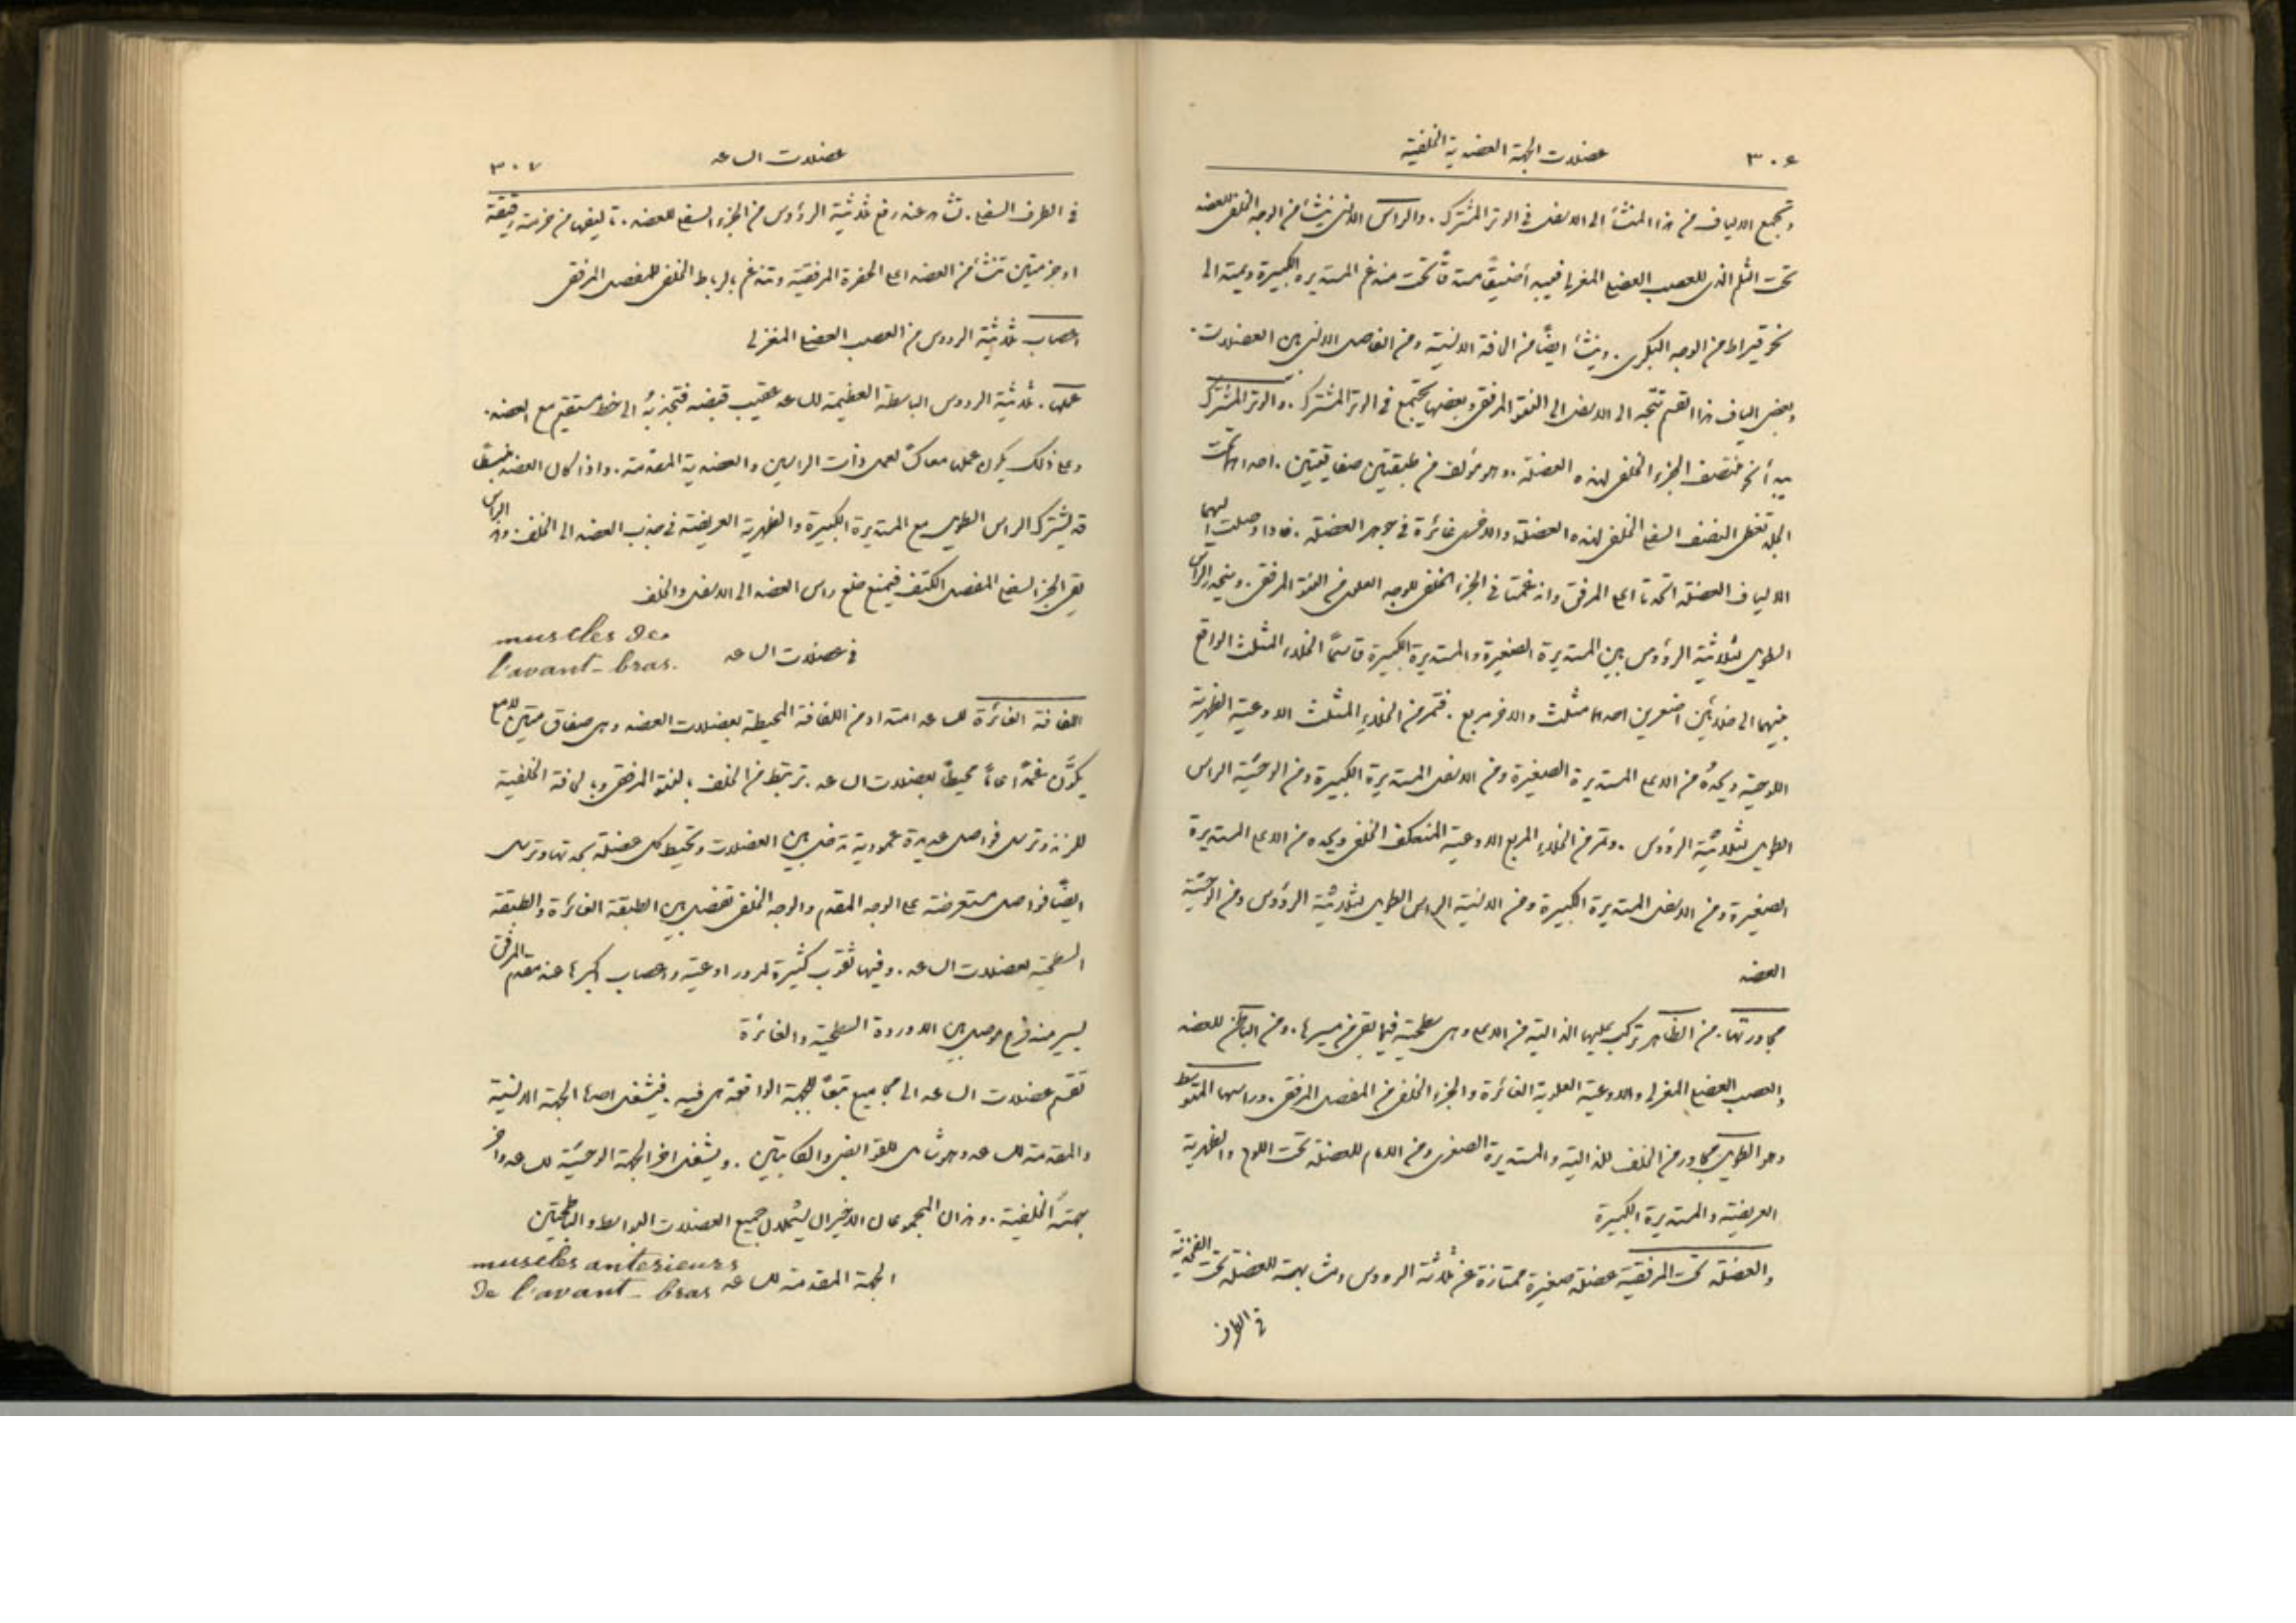 ٣٠٦ عضلات الجهة العضدية الخلفية
وتجمع الالياف من هذا المنشأ الى الاسفل في الوتر المشترك. والراس الانسي ينشأ من الوجه الخلفي للعضد
تحت الثلم الذي للعصب العضلي المغزلي فيبدأ ضيقًا مستدقًّا تحت مندغم المستديرة الكبيرة ويمتد الى
نحو قيراط من الوجه البكري. وينشأ ايضًا من الحافة الانسية ومن الفاصل الانسي بين العضلات.
وبعض الياف هذا القسم تتجه الى الاسفل الى النتو المرفقي وبعضها يجتمع في الوتر المشترك. والوتر المشترك
يبدأ نحو منتصف الجزء الخلفي لهذه العضلة. وهو مؤلف من طبقتين صفاقيتين. احداهما تحت
الجلد تغطي النصف السفلي الخلفي لهذه العضلة والاخرى غائرة في جوهر العضلة. فاذا وصلت اليهما
الالياف العضلية اتحدتا اعلى المرفق واندغمتا في الجزء الخلفي للوجه العلوي من النتو المرفقي. وينحدر الراس
الطويل لثلاثية الرؤوس بين المستديرة الصغيرة والمستديرة الكبيرة قاسمًا الخلاء المثلث الواقع
بينهما الى خلائين اصغرين احدهما مثلث والاخر مربع. فتمر من الخلاء المثلث الاوعية الظهرية
اللوحية ويحدّه من الاعلى المستديرة الصغيرة ومن الاسفل المستديرة الكبيرة ومن الوحشية الراس
الطويل لثلاثية الرؤوس. وتمر من الخلاء المربع الاوعية المنعكفة الخلفي ويحده من الاعلى المستديرة
الصغيرة ومن الاسفل المستديرة الكبيرة ومن الانسية الراس الطويل لثلاثية الرؤوس ومن الوحشية
العضد
مجاورتها. من الظاهر تركب عليها الدالية من الاعلى وهي سطحية فيما بقي من مسيرها. ومن الباطن للعضد
والعصب العضلي المغزلي والاوعية العلوية الغائرة والجزء الخلفي من المفصل المرفقي. وراسها المتوسط
وهو الطويل مجاور من الخلف للدالية والمستديرة الصغرى ومن الامام للعضلة تحت اللوح والظهرية
العريضة والمستديرة الكبيرة
والعضلة تحت المرفقية عضلة صغيرة ممتازة عن ثلاثية الرووس ومشابهة للعضلة تحت الفخذية
في الطرف
عضلات الساعد ٣٠٧
في الطرف السفلي. تشاهد عند رفع ثلاثية الرؤوس من الجزء السفلي للعضد. تاليفها من حزمة رقيقة
او حزمتين تنشأ من العضد اعلى الحفرة المرفقية وتندغم بالرباط الخلفي للمفصل المرفقي
اعصاب ثلاثية الرووس من العصب العضلي المغزلي
عملها. ثلاثية الرووس الباسطة العظيمة للساعد عقيب قبضه فتجذبه الى خط مستقيم مع العضد.
وعلى ذلك يكون عملها معاكسًا لعمل ذات الراسين والعضدية المقدمة. واذا كان العضد منبسطًا
قد يشترك الراس الطويل مع المستديرة الكبيرة والظهرية العريضة في جذب العضد الى الخلف. وهذا الراس
يقي الجزء السفلي للمفصل الكتفي فيمنع خلع راس العضد الى الاسفل والخلف
في عضلات الساعد muscles de
l'avant-bras.
اللفافة الغائرة للساعد امتداد من اللفافة المحيطة بعضلات العضد وهي صفاق متين لامع
يكوّن غمدًا عامًّا محيطًا بعضلات الساعد. ترتبط من الخلف بالنتو المرفقي وبالحافة الخلفية
للزند وترسل فواصل عديدة عمودية تدخل بين العضلات وتحيط كل عضلة بحدتها وترسل
ايضًا فواصل مستعرضة على الوجه المقدم والوجه الخلفي تفصل بين الطبقة الغائرة والطبقة
السطحية لعضلات الساعد. وفيها ثقوب كثيرة لمرور اوعية واعصاب اكبرها عند مقدم المرفق
يسير منه فرع موصل بين الاوردة السطحية والغائرة
تقسم عضلات الساعد الى مجاميع تبعًا للجهة الواقعة هي فيه. فيشغل احدها الجهة الانسية
والمقدمة للساعد وهو شامل للقوابض والكابتين. ويشغل اخر الجهة الوحشية للساعد واخر
جهته الخلفية. وهذان المجموعان الاخيران يشملان جميع العضلات البواسط والباطحتين
الجهة المقدمة للساعد muscles anterieurs
de l'avant-bras